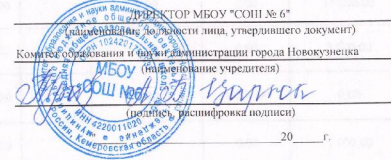 ДИРЕКТОР МБОУ "СОШ № 6"
(наименование должности лица, утвердившего документ)
Комитет образования и науки администрации города Новокузнецка
(наименование учредителя)
МБОУ
СОШ №6
(подпись, расшифровка подписи)
20 г.